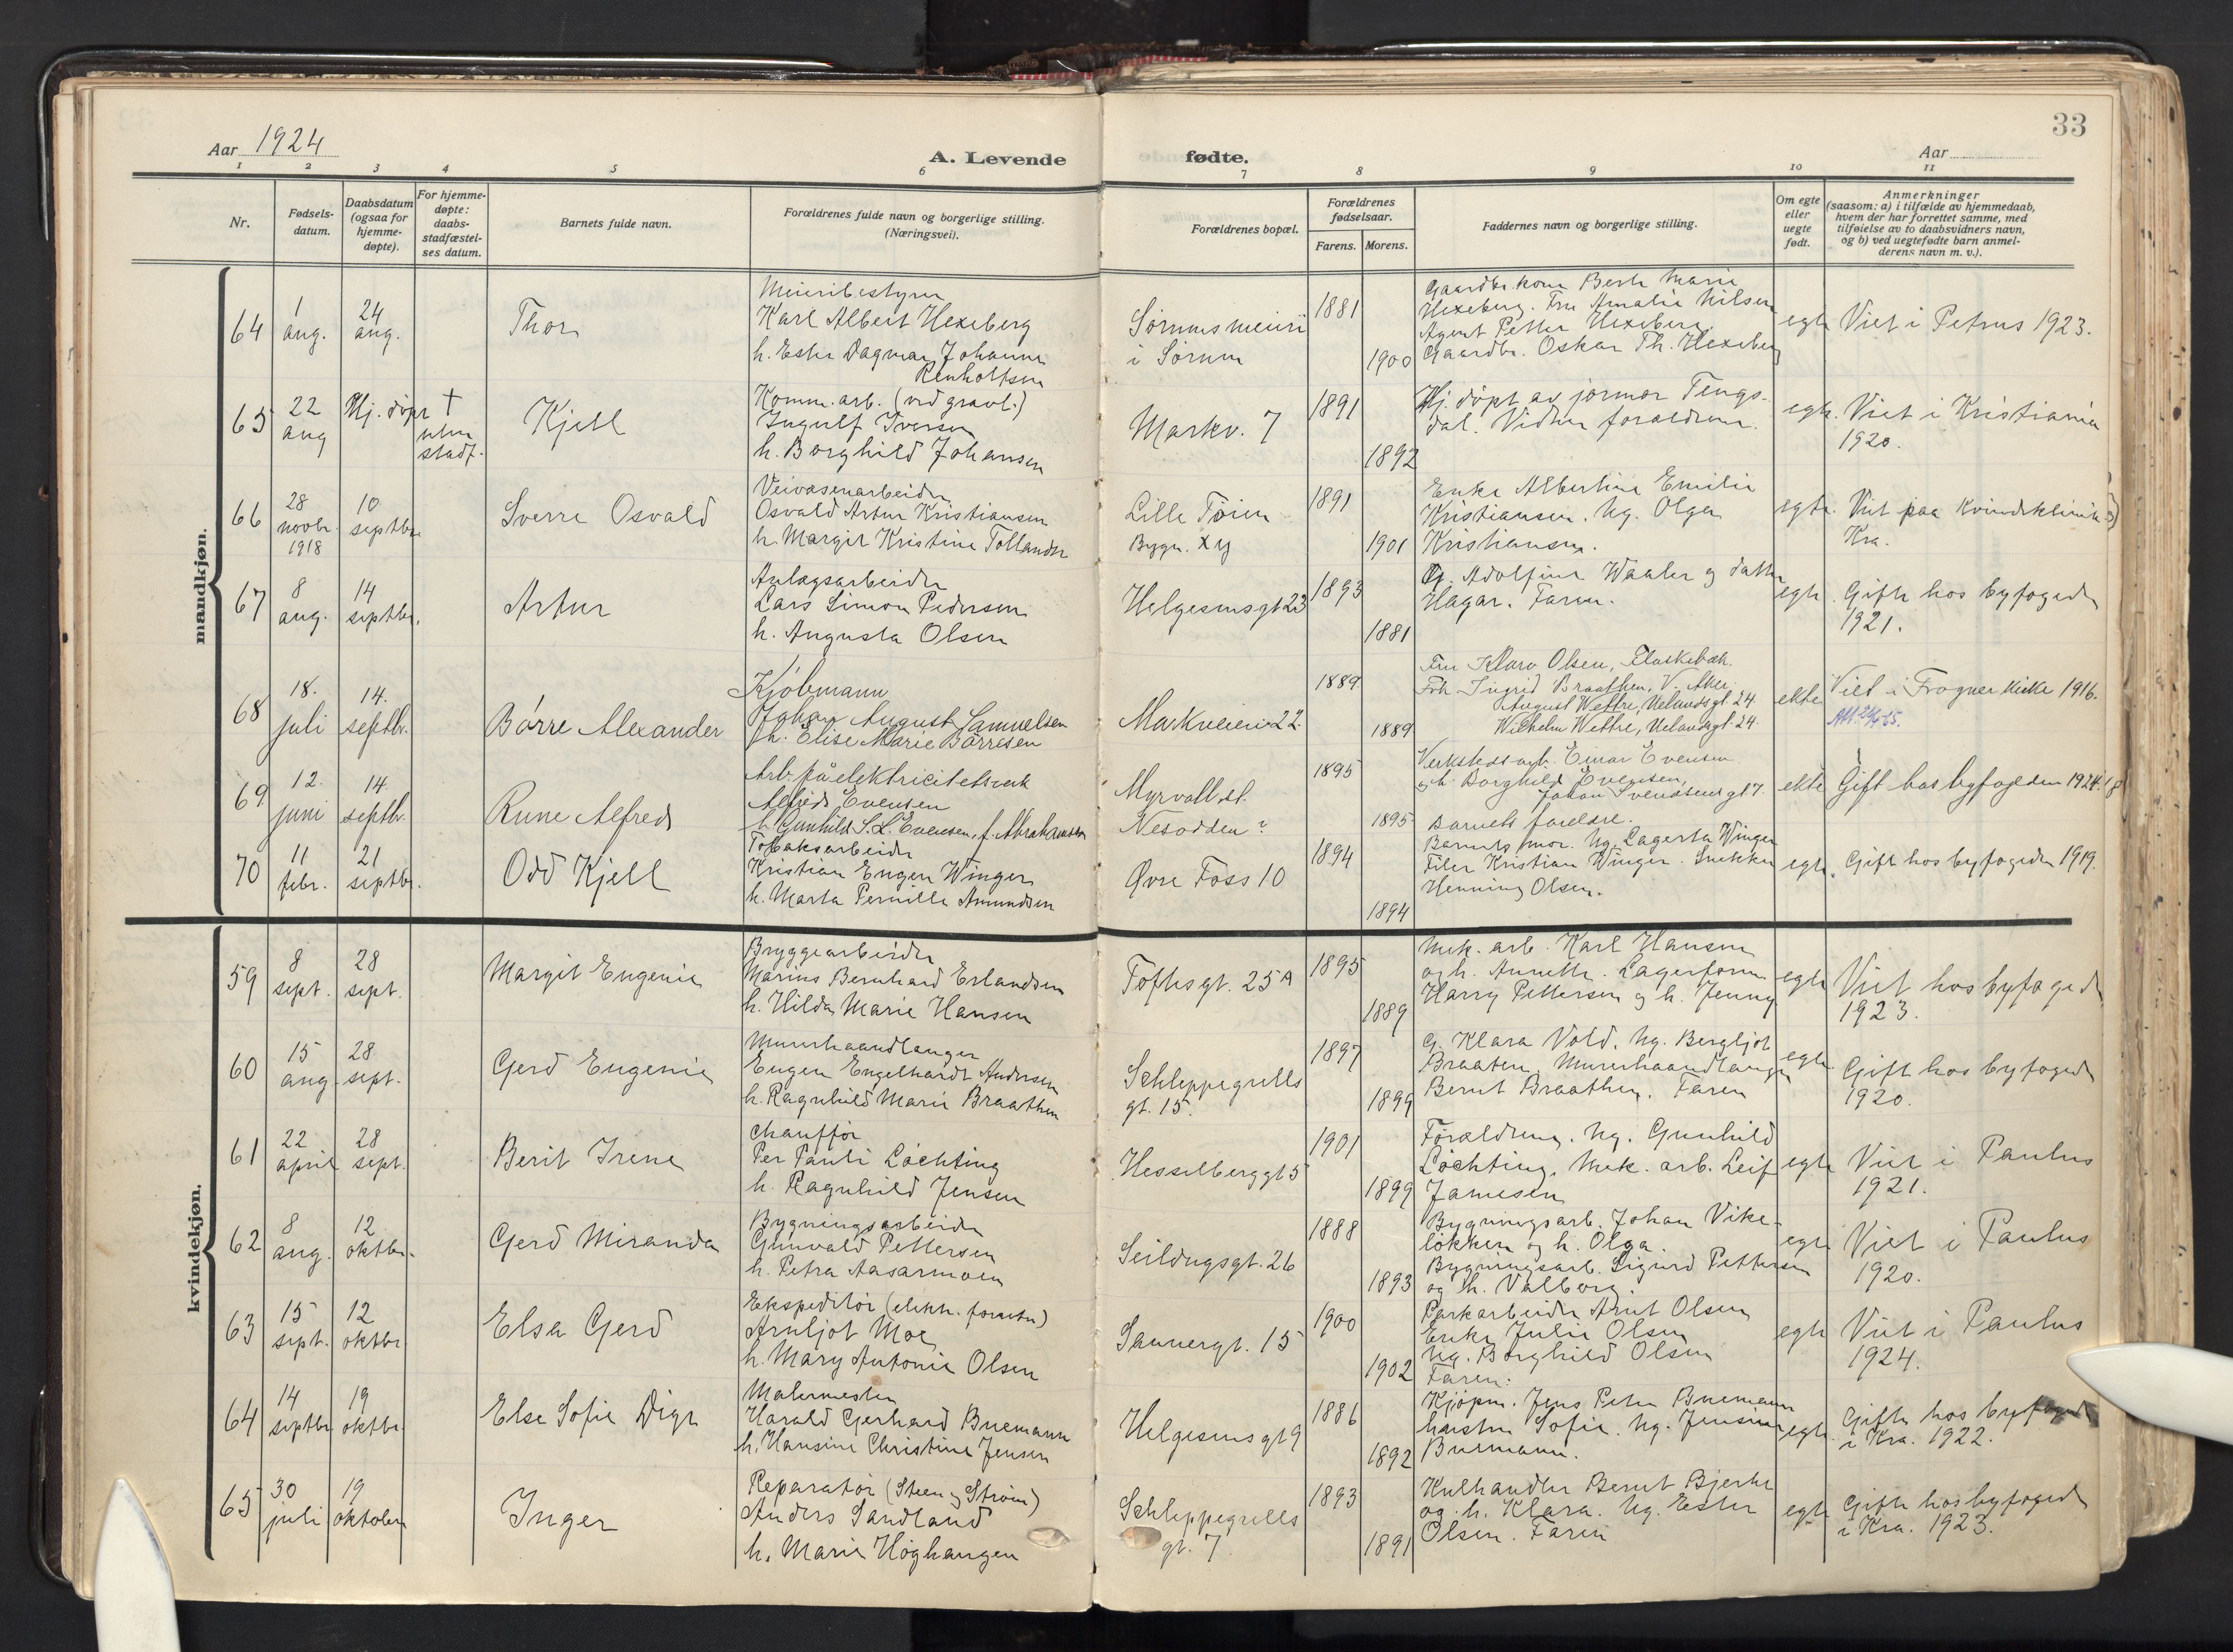 33
Aar 1924
A. Levende
fødte.
Aar
1 2 3 4 5 6 7 8 9 10 11
Nr.
Fødsels-
datum.
Daabsdatum
(ogsaa for
hjemme-
døpte).
For hjemme-
døpte:
daabs-
stadfæstel-
ses datum.
Barnets fulde navn.
Forældrenes fulde navn og borgerlige stilling.
(Næringsvei).
Forældrenes bopæl.
Forældrenes
fødselsaar.
Farens. Morens.
Faddernes navn og borgerlige stilling.
Om egte
eller
uegte
født.
Anmerkninger
(saasom: a) i tilfælde av hjemmedaab,
hvem der har forrettet samme, med
tilføielse av to daabsvidners navn,
og b) ved uegtefødte barn anmel-
derens navn m. v.).
mandkjøn.
64
1
aug.
24
aug.
Thor
Meieribestyrer
Karl Albert Hexeberg
h. Ester Dagmar Johanne
Renholtsen
Sørums meieri
i Sørum
1881
1900
Gaardbr. kone Berte Marie
Hexeberg. Fru Amalie Nilsen
Agent Petter Hexeberg
Gaardbr. Oskar Th. Hexeberg
egte
Viet i Petrus 1923.
65
22
aug
Hj. døpt
†
uten
stadf.
Kjell
Komm. arb. (ved gravl.)
Ingulf Iversen
h. Borghild Johansen
Markv. 7
1891
1892
Hj. døpt av jormor Tengs-
dal. Vidner forældrene.
egte.
Viet i Kristiania
1920.
66
28
novbr.
1918
10
septbr.
Sverre Osvald
Veivæsenarbeider
Osvald Artur Kristiansen
h. Margit Kristine Tollander
Lille Tøien
Bygn. xy
1891
1901
Enke Albertine Emilie
Kristiansen. Ug. Olga
Kristiansen.
egte.
Viet paa Kvindeklinik
Kra.
67
8
aug.
14
septbr.
Artur
Anlægsarbeider
Lars Simon Pedersen
h. Augusta Olsen
Helgesensgt 23
1893
1881
G. Adolfine Waaler og datter
Hagar. Faren.
egte
Gifte hos byfogeden
1921.
68
18.
juli
14.
septbr.
Børre Alexander
Kjøbmann
Johan August Samuelsen
h. Elise Marie Børresen
Markveien 22
1889
1889
Fru Klara Olsen, Flaskebæk.
Frk. Ingrid Braathen, V. Aker.
August Wettre, Uelandsgt. 24
Wilhelm Wettre, Uelandsgt. 24.
ekte
Viet i Frogner kirke 1916.
69
12.
juni
14.
septbr.
Rune Alfred
Arb. på elektricitetsverk
Alfred Evensen
h. Gunhild S. L. Evensen, f. Abrahamsen
Myrvoll st.
Nesodden ?
1895
1895
Verkstedsarb. Einar Evensen
og h. Borghild Evensen,
Johan Svendsens gt 7.
Barnets foreldre.
ekte
Gift hos byfogden 1924.
70
11
febr.
21
septbr.
Odd Kjell
Tobaksarbeider
Kristian Eugen Winger
h. Marta Pernille Amundsen
Øvre Foss 10
1894
1894
Barnets mor. Ug. Lagerta Winger
Filer Kristian Winger. Snekker
Henning Olsen.
egte.
Gift hos byfogden 1919.
kvindekjøn.
59
8
sept.
28
sept.
Margit Eugenie
Bryggearbeider
Marius Bernhard Erlandsen
h. Hilda Marie Hansen
Toftesgt. 25 A
1895
1889
Mek. arb. Karl Hansen
og h. Annette. Lagerform.
Harry Pettersen og h. Jenny
egte
Viet hos byfoged
1923.
60
15
aug.
28
sept.
Gerd Eugenie
Murerhaandlanger
Eugen Engelhardt Andersen
h. Ragnhild Marie Braathen
Schleppegrells
gt. 15.
1897
1899
G. Klara Vold. Ug. Bergljot
Braaten. Murerhaandlanger
Bernt Braathen. Faren
egte
Gift hos byfoged
1920.
61
22
april
28
sept.
Berit Irene
Chauffør
Per Pauli Løchting
h. Ragnhild Jensen
Hesselberggt 5
1901
1899
Forældrene. Ug. Gunhild
Løchting. Mek. arb. Leif
Jamesen
egte
Viet i Paulus
1921.
62
8
aug.
12
oktbr.
Gerd Miranda
Bygningsarbeider
Gunvald Pettersen
h. Petra Aasarmoen
Seildugsgt. 26
1888
1893
Bygningsarb. Johan Vike-
løkken og h. Olga.
Bygningsarb. Sigurd Pettersen
og h. Valborg.
egte
Viet i Paulus
1920.
63
15
sept.
12
oktbr.
Elsa Gerd
Ekspeditør (elektr. forretn)
Arnljot Moe
h. Mary Antonie Olsen
Sannergt. 15
1900
1902
Parkarbeider Arnt Olsen
Enke Julie Olsen
Ug. Borghild Olsen
Faren.
egte
Viet i Paulus
1924.
64
14
septbr
19
oktbr.
Else Sofie Digre
Malermester
Harald Gerhard Buemann
h. Hansine Christine Jensen
Helgesensgt 9
1886
1892
Kjøpm. Jens Peter Buemann
hustru Sofie. Ug. Jensine
Buemann.
egte.
Gifte hos byfoged
i Kra. 1922.
65
30
juli
19
oktober
Inger
Reparatør (Steen og Strøm)
Anders Sandland
h. Marie Høghaugen
Schleppegrells
gt. 7
1893
1891
Kulhandler Bernt Bjerke
og h. Klara. Ug. Ester
Olsen. Faren
egte
Gifte hos byfoged
i Kra. 1923.